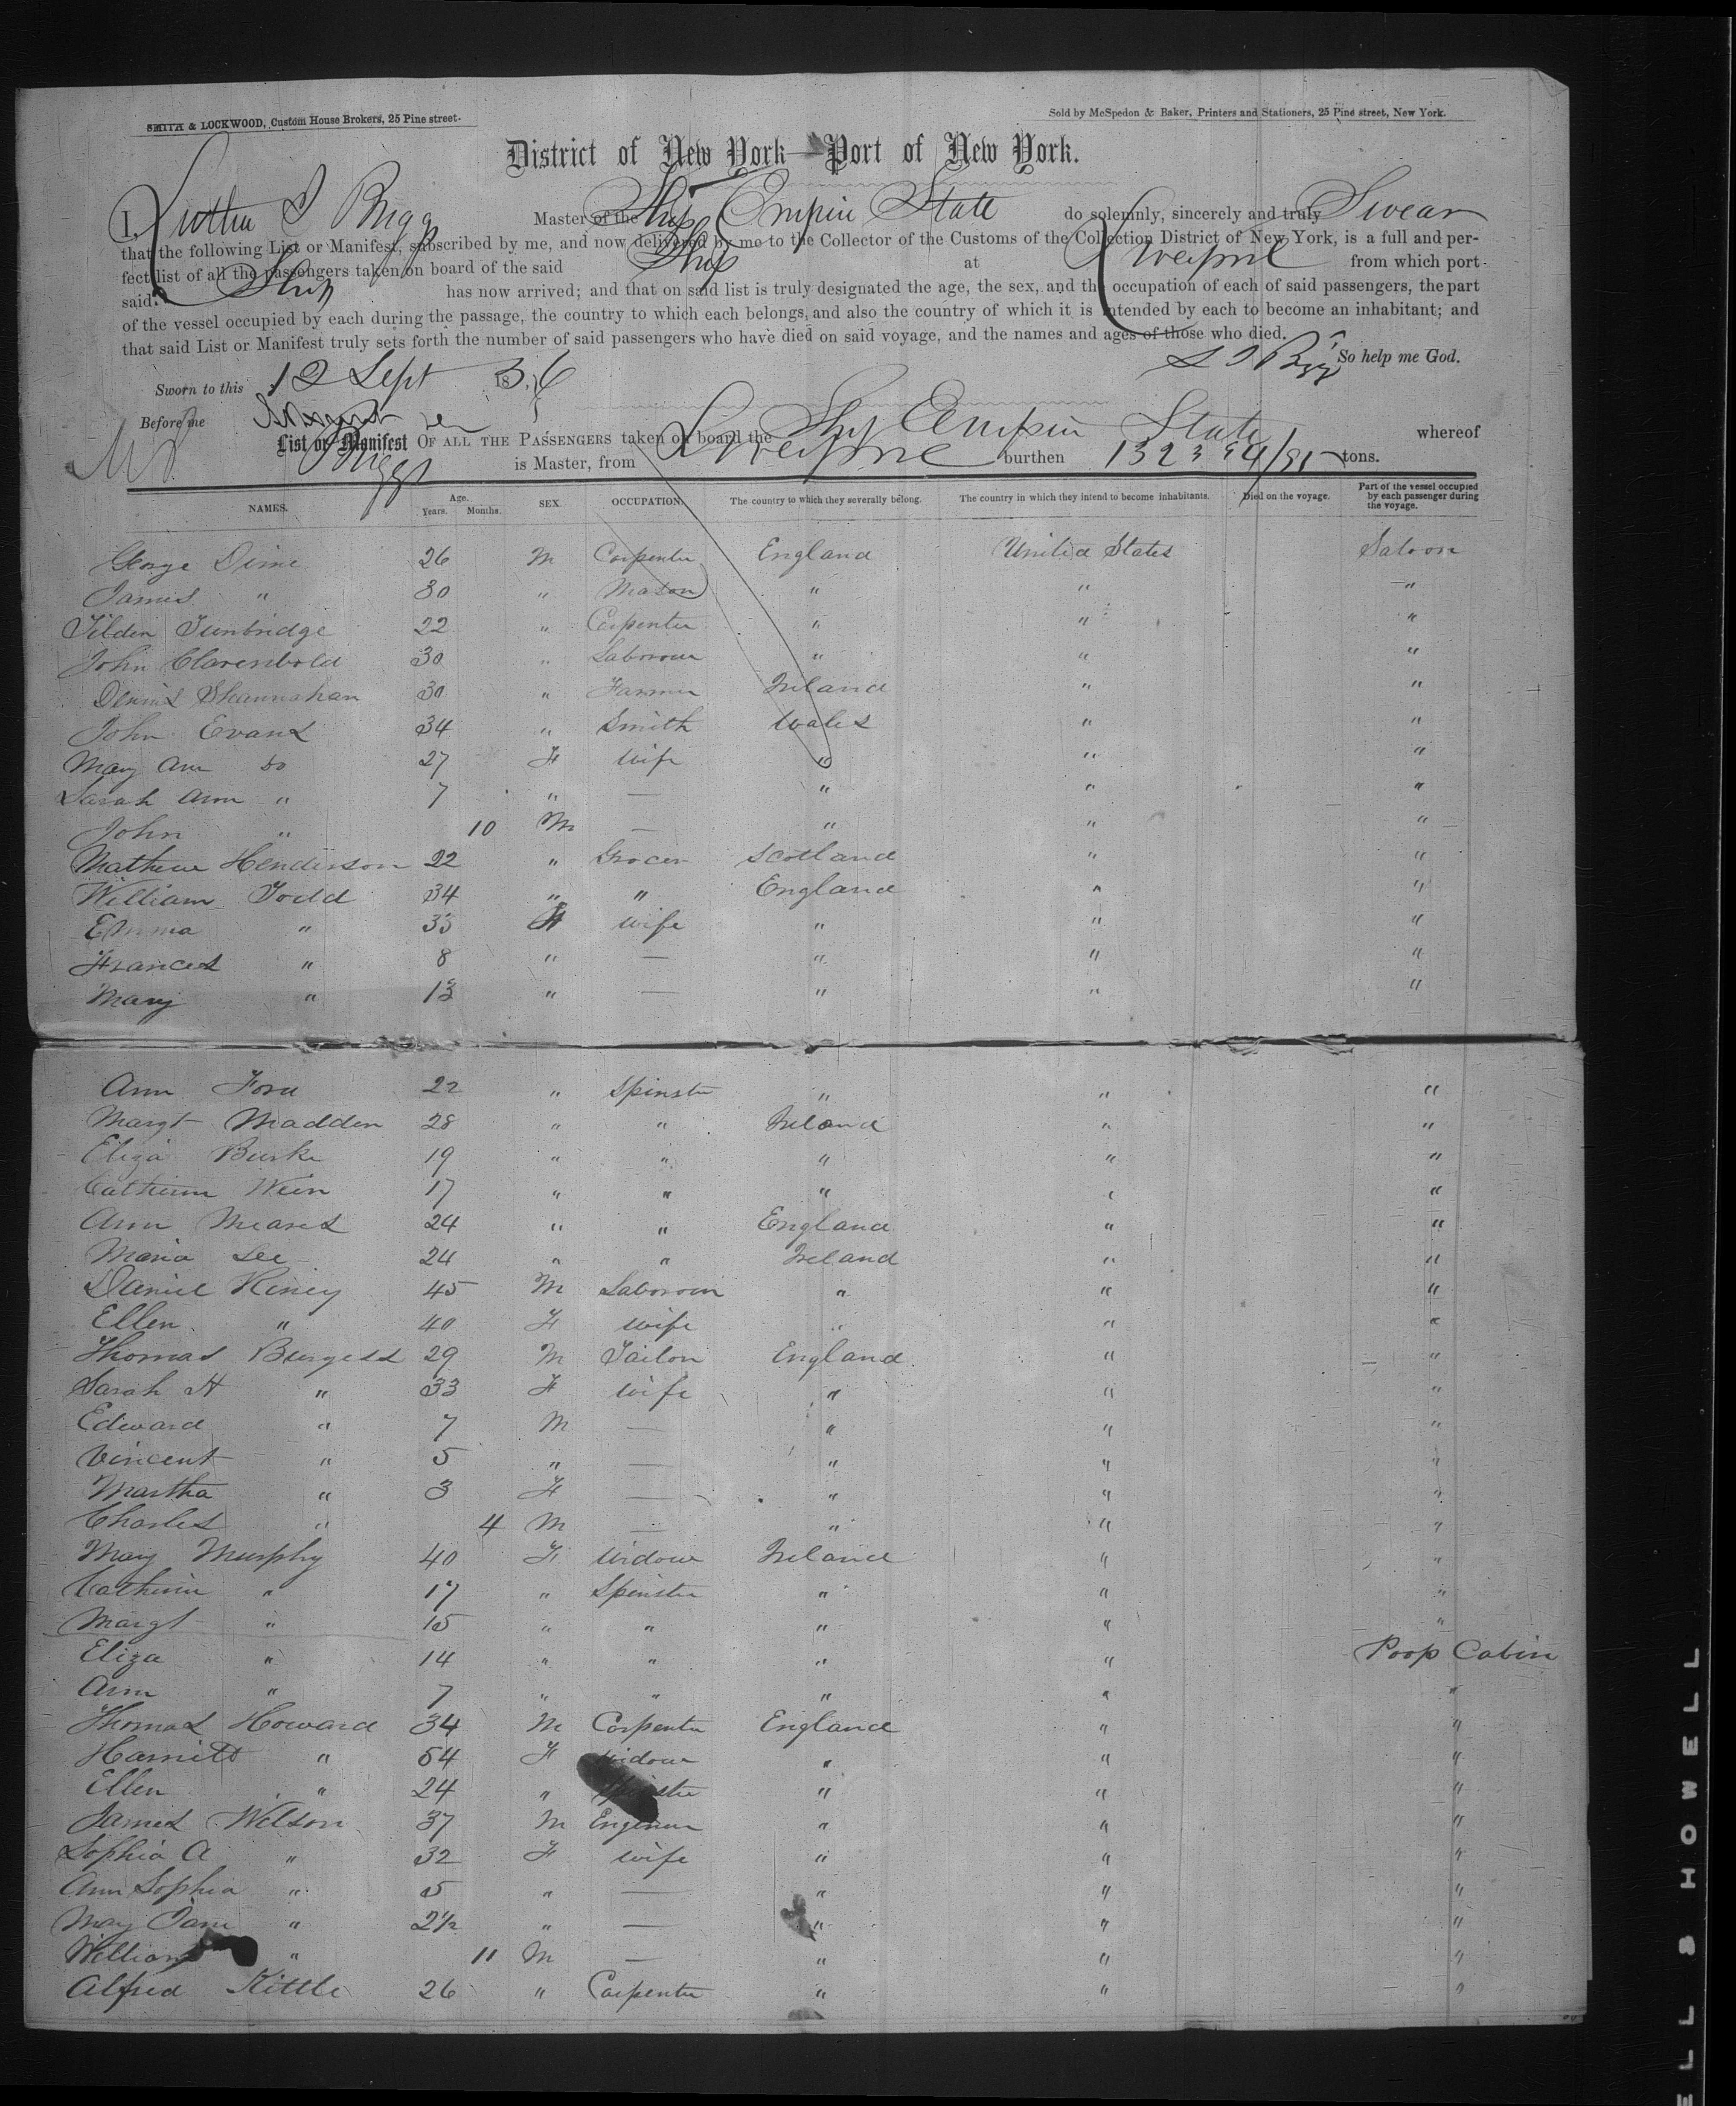 SMITH & LOCKWOOD, Custom House Brokers, 25 Pine street.
Sold by McSpedon & Baker, Printers and Stationers, 25 Pine street, New York.
District of New York—Port of New York.
I, Luther S Briggs Master of the Ship Empire State do solemnly, sincerely and truly Swear
that the following List or Manifest, subscribed by me, and now delivered by me to the Collector of the Customs of the Collection District of New York, is a full and per-
fect list of all the passengers taken on board of the said Ship at Liverpool from which port
said Ship has now arrived; and that on said list is truly designated the age, the sex, and the occupation of each of said passengers, the part
of the vessel occupied by each during the passage, the country to which each belongs, and also the country of which it is intended by each to become an inhabitant; and
that said List or Manifest truly sets forth the number of said passengers who have died on said voyage, and the names and ages of those who died.
L S Briggs So help me God.
Sworn to this 12 Sept 1856
Before me
List or Manifest OF ALL THE PASSENGERS taken on board the Ship Empire State whereof
Briggs is Master, from Liverpool burthen 1323 94/95 tons.
NAMES. Age. Years. Months. SEX. OCCUPATION. The country to which they severally belong. The country in which they intend to become inhabitants. Died on the voyage. Part of the vessel occupied by each passenger during the voyage.
George Dime 26 M Carpenter England United States Saloon
James " 30 " Mason " " "
Tilden Tunbridge 22 " Carpenter " " "
John Clarenbold 30 " Labourer " " "
Dennis Shannahan 30 " Farmer Ireland " "
John Evans 34 " Smith Wales " "
Mary Ann do 27 F Wife " " "
Sarah Ann " 7 " — " " "
John " 10 M — " " "
Mathew Henderson 22 " Grocer Scotland " "
William Todd 34 " " England " "
Emma " 33 F Wife " " "
Frances " 8 " — " " "
Mary " 13 " — " " "
Ann Ford 22 " Spinster " " "
Margt Madden 28 " " Ireland " "
Eliza Burke 19 " " " " "
Catherine Wein 17 " " " " "
Ann Meares 24 " " England " "
Maria Lee 24 " " Ireland " "
Daniel Riney 45 M Labourer " " "
Ellen " 40 F Wife " " "
Thomas Burgess 29 M Tailor England " "
Sarah H " 33 F Wife " " "
Edward " 7 M — " " "
Vincent " 5 " — " " "
Martha " 3 F — " " "
Charles " 4 M — " " "
Mary Murphy 40 F Widow Ireland " "
Catherine " 17 " Spinster " " "
Margt " 15 " " " " "
Eliza " 14 " " " " Poop Cabin
Ann " 7 " " " " "
Thomas Howard 34 M Carpenter England " "
Harriett " 54 F Widow " " "
Ellen " 24 " Spinster " " "
James Wilson 37 M Engineer " " "
Sophia A " 32 F Wife " " "
Ann Sophia " 5 " — " " "
Mary Jane " 2½ " — " " "
William " 11 M — " " "
Alfred Kittle 26 " Carpenter " " "
ELL & HOWELL